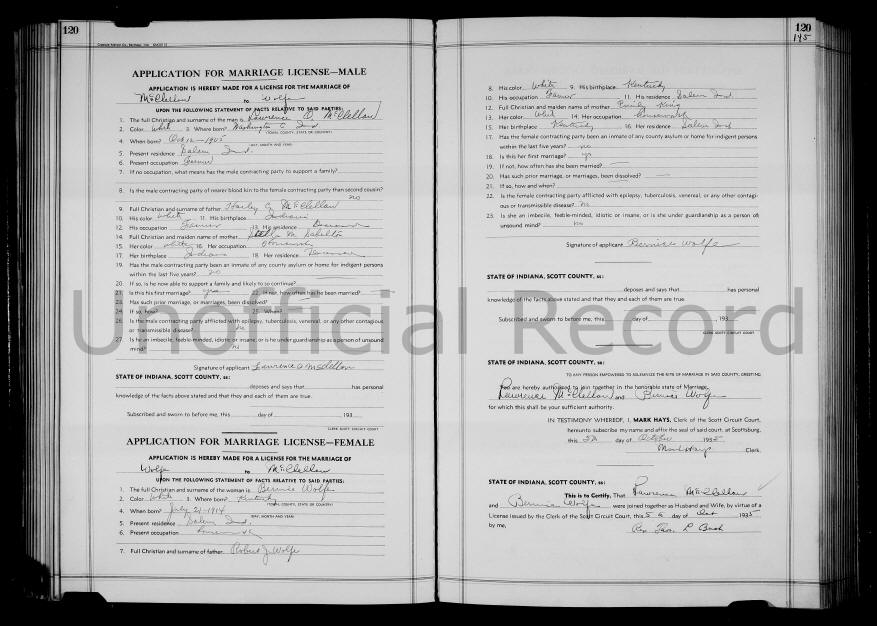 120
APPLICATION FOR MARRIAGE LICENSE—MALE
APPLICATION IS HEREBY MADE FOR A LICENSE FOR THE MARRIAGE OF
McClellan to Wolfe
UPON THE FOLLOWING STATEMENT OF FACTS RELATIVE TO SAID PARTIES:
1. The full Christian and surname of the man is Lawrence O. McClellan
2. Color White 3. Where born? Washington C Ind
(TOWN, COUNTY, STATE OR COUNTRY)
4. When born? Oct 12—1905
(DAY, MONTH AND YEAR)
5. Present residence Salem Ind.
6. Present occupation Farmer
7. If no occupation, what means has the male contracting party to support a family?
8. Is the male contracting party of nearer blood kin to the female contracting party than second cousin?
no
9. Full Christian and surname of father Harley G McClellan
10. His color White 11. His birthplace Indiana
12. His occupation Farmer 13. His residence Deceased
14. Full Christian and maiden name of mother Stella M
15. Her color white 16. Her occupation
17. Her birthplace Indiana 18. Her residence
19. Has the male contracting party been an inmate of any county asylum or home for indigent persons
within the last five years? no
20. If so, is he now able to support a family and likely to so continue?
21. Is this his first marriage? yes 22. If not, how often has he been married?
23. Has such prior marriage, or marriages, been dissolved?
24. If so, how? 25. When?
26. Is the male contracting party afflicted with epilepsy, tuberculosis, venereal, or any other contagious
or transmissible disease? no
27. Is he an imbecile, feeble-minded, idiotic or insane, or is he under guardianship as a person of unsound
mind? no
Signature of applicant Lawrence O McClellan
STATE OF INDIANA, SCOTT COUNTY, ss:
deposes and says that has personal
knowledge of the facts above stated and that they and each of them are true.
Subscribed and sworn to before me, this day of , 193
CLERK SCOTT CIRCUIT COURT
APPLICATION FOR MARRIAGE LICENSE—FEMALE
APPLICATION IS HEREBY MADE FOR A LICENSE FOR THE MARRIAGE OF
Wolfe to McClellan
UPON THE FOLLOWING STATEMENT OF FACTS RELATIVE TO SAID PARTIES:
1. The full Christian and surname of the woman is Bernice Wolfe
2. Color White 3. Where born? Kentucky
(TOWN, COUNTY, STATE OR COUNTRY)
4. When born? July 21-1914
(DAY, MONTH AND YEAR)
5. Present residence Salem Ind.
6. Present occupation Housework
7. Full Christian and surname of father Robert J Wolfe
120
145
8. His color White 9. His birthplace Kentucky
10. His occupation Farmer 11. His residence Salem Ind
12. Full Christian and maiden name of mother Emily King
13. Her color White 14. Her occupation Housework
15. Her birthplace Kentucky 16. Her residence Salem Ind
17. Has the female contracting party been an inmate of any county asylum or home for indigent persons
within the last five years? no
18. Is this her first marriage? yes
19. If not, how often has she been married?
20. Has such prior marriage, or marriages, been dissolved?
21. If so, how and when?
22. Is the female contracting party afflicted with epilepsy, tuberculosis, venereal, or any other contagi-
ous or transmissible disease? no
23. Is she an imbecile, feeble-minded, idiotic or insane, or is she under guardianship as a person of
unsound mind? no
Signature of applicant Bernice Wolfe
STATE OF INDIANA, SCOTT COUNTY, ss:
deposes and says that has personal
knowledge of the facts above stated and that they and each of them are true.
Subscribed and sworn to before me, this day of , 193
CLERK SCOTT CIRCUIT COURT
STATE OF INDIANA, SCOTT COUNTY, ss:
TO ANY PERSON EMPOWERED TO SOLEMNIZE THE RITE OF MARRIAGE IN SAID COUNTY, GREETING
You are hereby authorized to join together in the honorable state of Marriage,
Lawrence McClellan and Bernice Wolfe
for which this shall be your sufficient authority.
IN TESTIMONY WHEREOF, I, MARK HAYS, Clerk of the Scott Circuit Court,
hereunto subscribe my name and affix the seal of said court, at Scottsburg,
this 5th day of October 1935
Mark Hays Clerk.
STATE OF INDIANA, SCOTT COUNTY, ss:
This is to Certify, That Lawrence McClellan
and Bernice Wolfe were joined together as Husband and Wife, by virtue of a
License issued by the Clerk of the Scott Circuit Court, this 5 day of Oct 1935
by me,
Rev Thos. R Bush
Unofficial Record